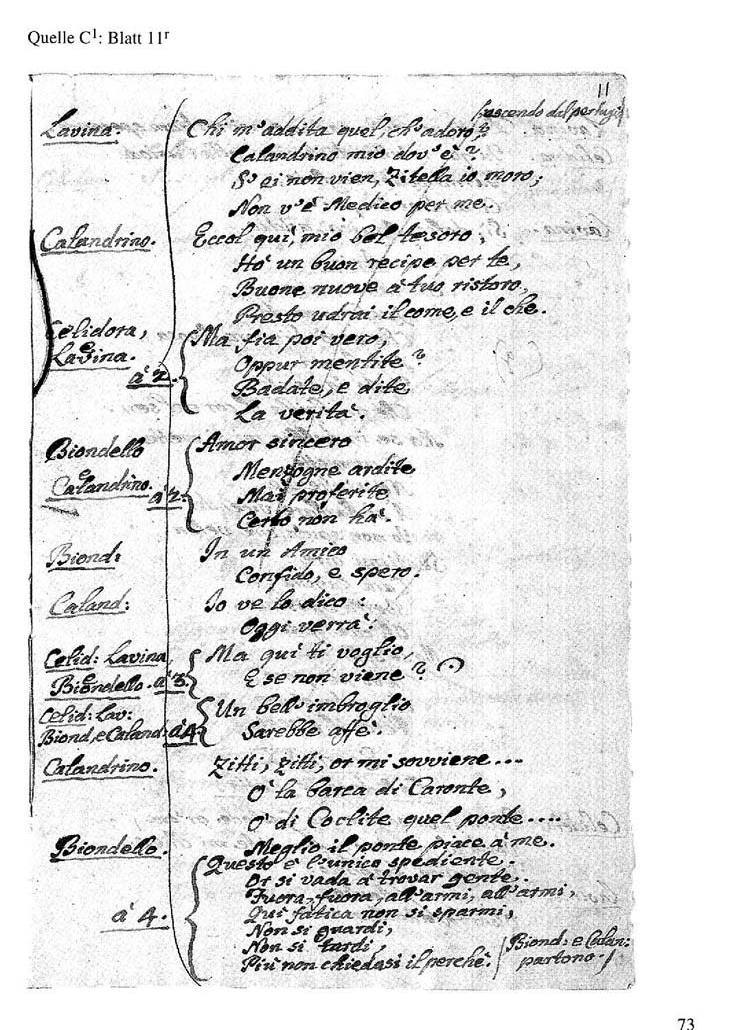 Quelle C1: Blatt 11r
11
fuscendo dal pertugio
Lavina. Chi m'addita quel, ch'adoro?
Calandrino mio dov'è?
S'ei non vien, Zitella io moro;
Non v'è Medico per me.
Calandrino. Eccol qui, mio bel tesoro;
Hò un buon recipe per te,
Buone nuove à tuo ristoro,
Presto udrai il come, e il che.
Celidora, Ma fia poi vero,
e Lavina. Oppur mentite?
à 2. Badate, e dite
La verità.
Biondello Amor sincero
e Menzogne ardite
Calandrino. à 2. Mai proferite
Certo non hà.
Biond: In un Amico
Confido, e spero.
Caland: Io ve lo dico:
Oggi verrà.
Celid: Lavina, Ma qui ti voglio,
e Biondello. à 3. E se non viene?
Celid: Lav: Un bell'imbroglio
Biond, e Caland: à 4. Sarebbe affè.
Calandrino. Zitti, zitti, or mi sovviene...
O' la barca di Caronte,
O' di Coclite quel ponte....
Biondello. Meglio il ponte piace à me.
Questo è l'unico spediente.
Or si vada à trovar gente.
Fuora, fuora, all'armi, all'armi,
à 4. Qui fatica non si sparmi,
Non si guardi,
Non si tardi,
Più non chiedasi il perchè. Biond: e Calan:
partono.
73